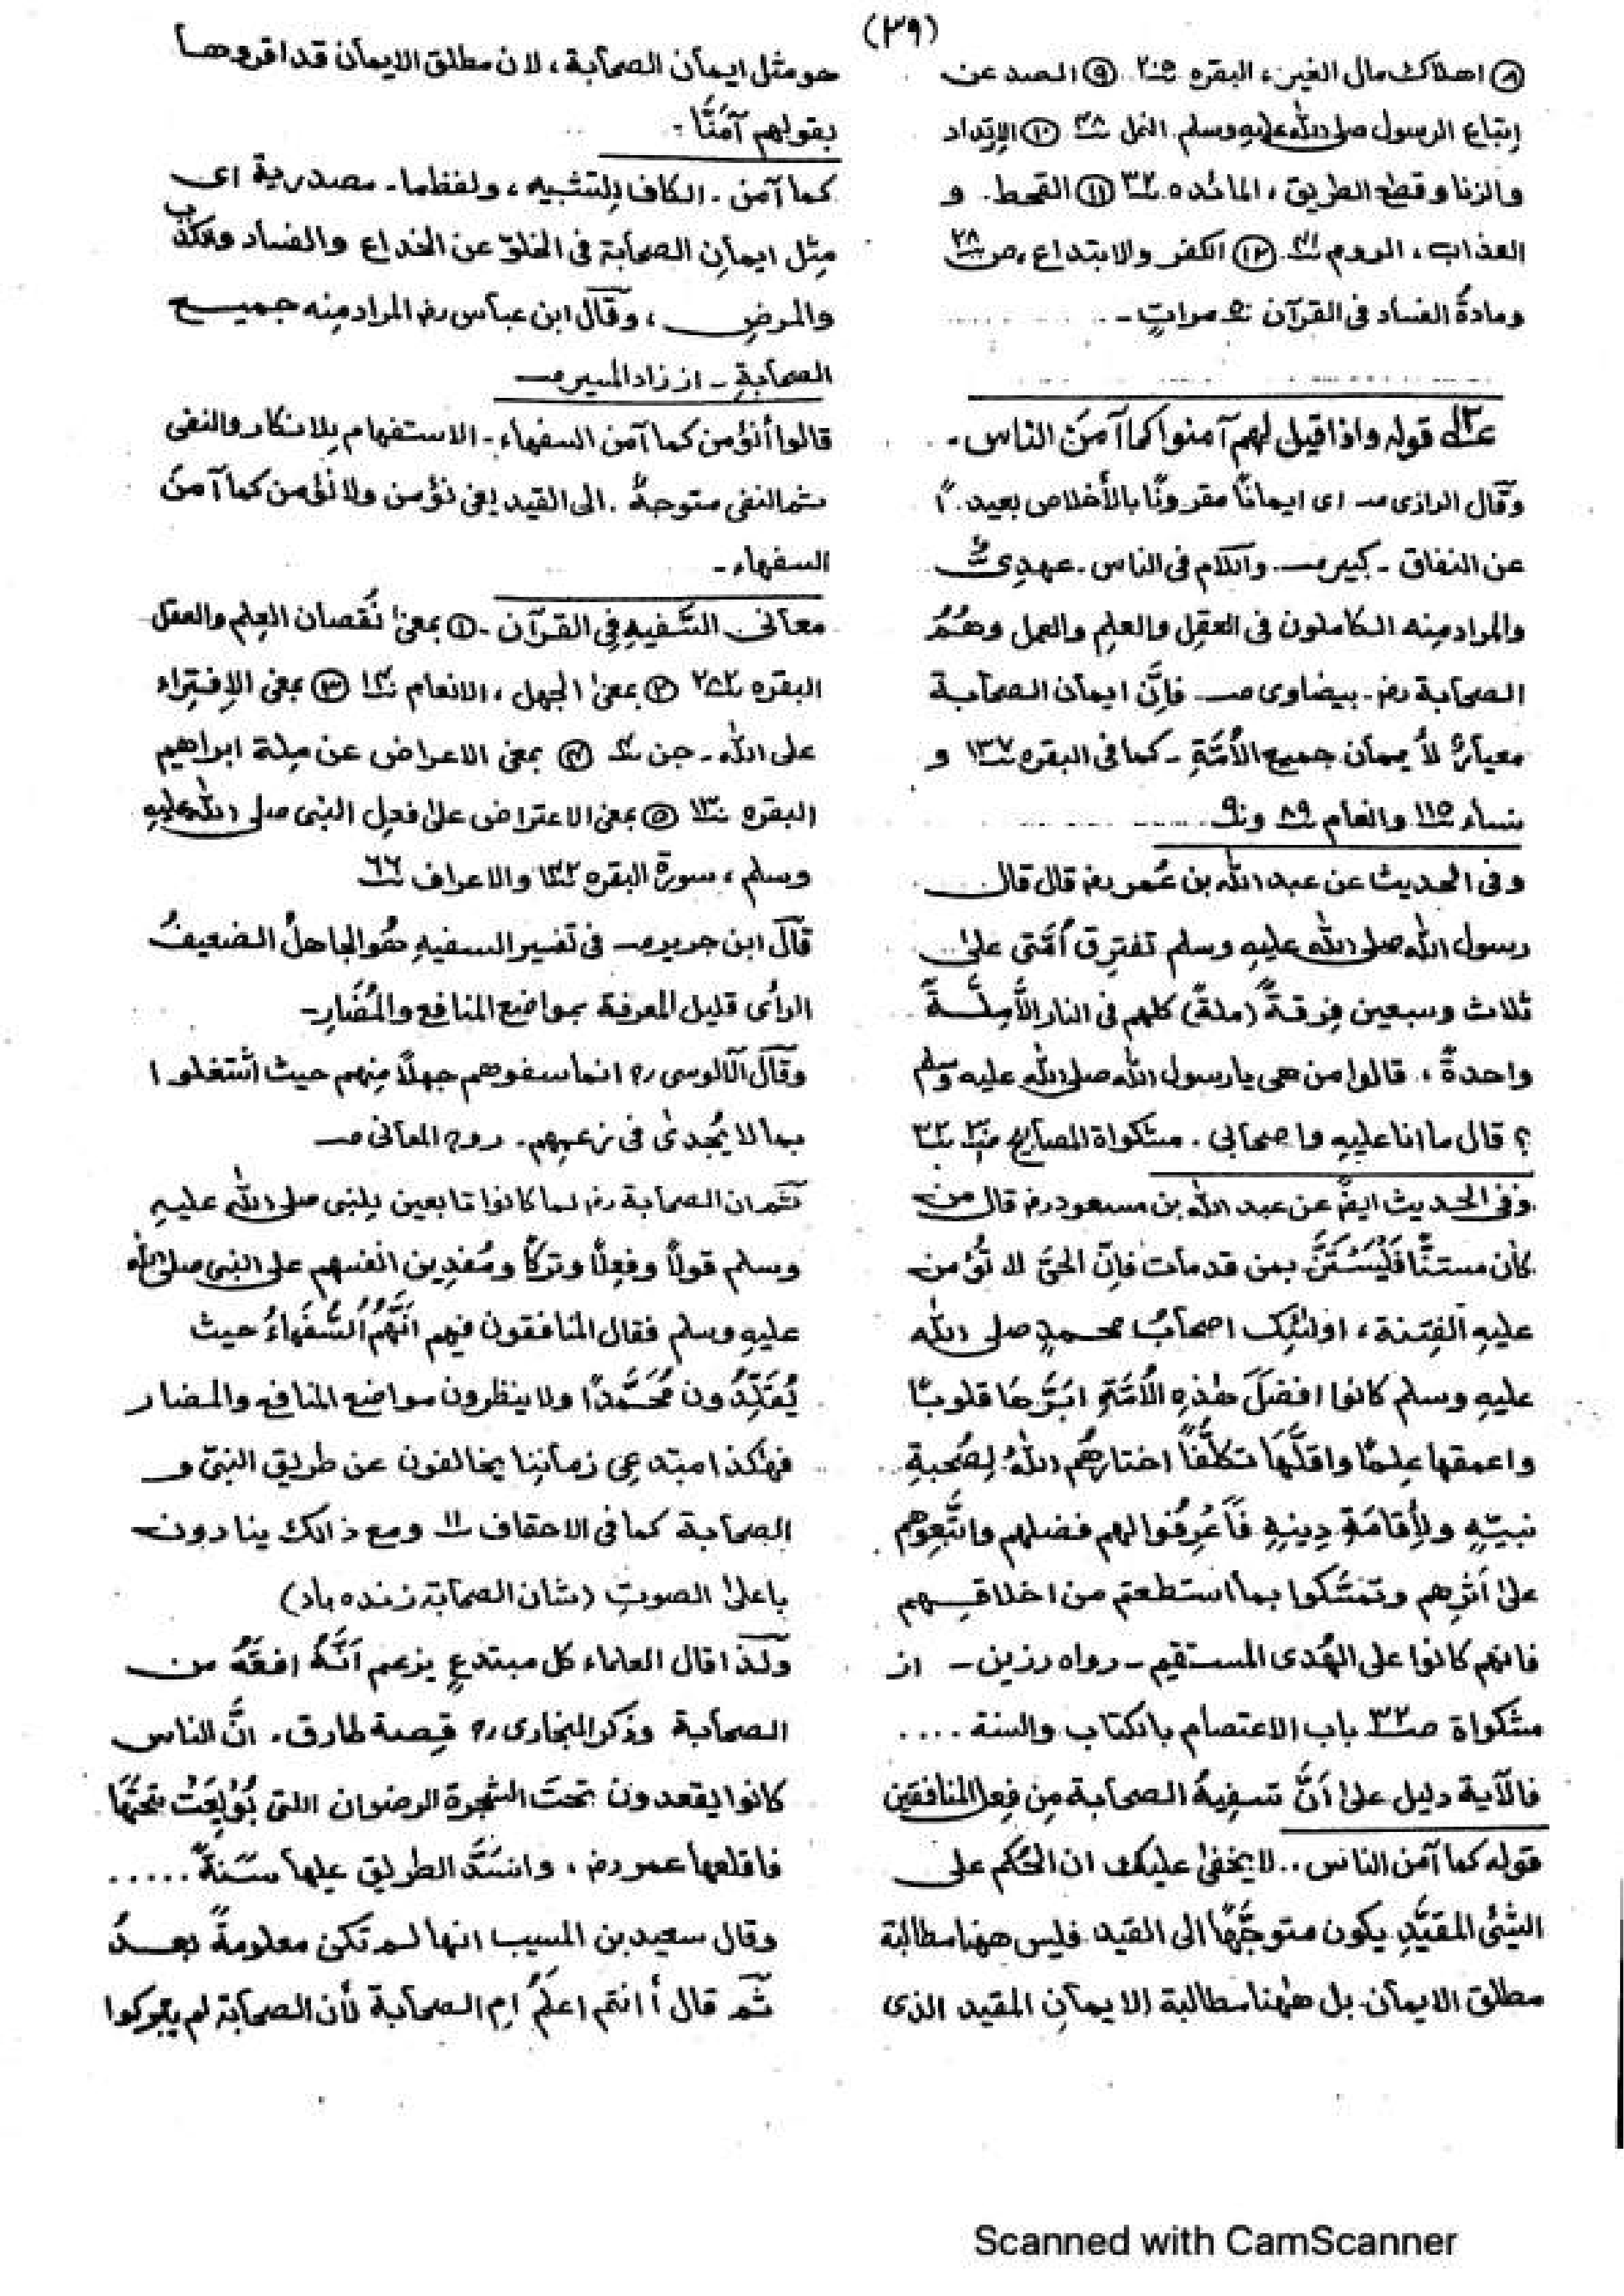 (٣٩)
⑧ اهلاك مال الغير، البقره ٢٠٥ ⑨ الصد عن
إتباع الرسول صلى الله عليه وسلم النمل ⑩ الإرتداد
والزنا وقطع الطريق، المائده ٣٣ ⑪ القحط و
العذاب، الروم ٤١ ⑫ الكفر والابتداع، ص ٢٨
ومادة الفساد فى القرآن مراتٍ ـ
١٣ قوله واذا قيل لهم آمنوا كما آمن الناس ـ
وقال الرازى اى ايمانًا مقرونًا بالأخلاص بعيدًا
عن النفاق ـ كبير ـ واللام فى الناس ـ عهدى
والمراد منه الكاملون فى العقل والعلم والعمل وهُمُ
الصحآبة رض ـ بيضاوى ـ فإنَّ ايمان الصحآبة
معيارٌ لأيمان جميع الأُمَّةِ ـ كما فى البقره ١٣٧ و
نساء ١١٥ وانعام ٨٩ و ٩٠
وفى الحديث عن عبد الله بن عُمر رض قال قال
رسول الله صلى الله عليه وسلم تفترق أُمَّتى على
ثلاث وسبعين فِرقةً (ملةً) كلهم فى النار الأَّمِلَّةً
واحدةً، قالوا من هى يا رسول الله صلى الله عليه وسلم
؟ قال ما انا عليهِ واصحابى ـ مشكواة المصابيح
وفى الحديث ايضً عن عبد الله بن مسعود رض قال من
كان مستنًّا فَلْيَسْتَنَّ بمن قد مات فإنّ الحىَّ لا تُؤمن
عليهِ الفِتنة، اولئِك اصحابُ محمدٍ صلى الله
عليهِ وسلم كانوا افضلَ هٰذهِ الأُمَّةِ ابَرَّهَا قلوبًا
واعمقها عِلمًا واقلَّها تكلُّفًا اختارهُم اللهُ لِصُحبةِ
نبيّهٖ ولِأقامَةِ دِينِهٖ فَاعْرِفُوا لهم فضلهم واتَّبِعوهم
علىٰ أثرِهم وتمسَّكوا بما استطعتم من اخلاقهم
فانهم كانوا على الهُدى المستقيم ـ رواه رزين ـ از
مشكواة ص ٣٢ باب الاعتصام بالكتاب والسنة ....
فالآية دليل علىٰ أنَّ تسفِيهُ الصحآبة مِن فِعل المنافقين
قوله كما آمن الناس .. لا يخفىٰ عليك ان الحُكم على
الشئى المقيَّدِ يكون متوجِّهًا الى القيد فليس ههنا مطالبة
مطلق الايمان بل هٰهنا مطالبة الايمآنِ المقيد الذى
هو مثل ايمآن الصحآبة، لان مطلق الايمآن قد اقروها
بقولهم آمَنَّا ـ
كما آمن ـ الكاف للتشبيه، ولفظ ما ـ مصدرية اى
مِثل ايمآنِ الصحآبة فى الخلوّ عن الخداع والفساد والكذب
والمرضِ، وقَال ابن عباس رض المراد مِنه جميع
الصحآبةِ ـ از زاد المسير
قالوا أنؤمن كما آمن السفهاء ـ الاستفهام للانكار والنفى
ثم النفى متوجهٌ الى القيد يعنى نؤمن ولا نؤمن كما آمنَ
السفهاء ـ
معآنى السَّفيهِ فِى القرآن ـ ① بمعنىٰ نُقصان العِلم والعقل
البقره ٢٨٢ ② بمعنىٰ الجهل، الانعام ③ بمعنى الإفتِراء
على الله ـ جن ④ بمعنى الاعراض عن مِلة ابراهيم
البقره ١٣٠ ⑤ بمعنىٰ الاعتراض علىٰ فعلِ النبى صلى الله عليهِ
وسلم، سورة البقره ١٤٢ والاعراف ٦٦
قَال ابن جرير فى تفسير السفيهِ هُو الجاهلُ الضعيفُ
الرأى قليل المعرفة بمواضع المنافع والمُضَارِ ـ
وقَال الآلوسى رح انما سفوهم جهلاً مِنهم حيث اشتغلوا
بما لا يُجدىٰ فى زعمِهم ـ روح المعآنى
ثم ان الصحآبة رض لما كانوا تابعين للنبى صلى الله عليهِ
وسلم قولاً وفعِلاً وتركًا ومُفدِين انفسهم على النبى صلى الله
عليهِ وسلم فقال المنافقون فيهم انَّهُمُ السُّفَهاءُ حيث
يُقَلِّدُون مُحَمَّدًا ولا ينظرون مواضع المنافع والمضار
فهٰكذا مبتدعى زمآنِنا يخالفون عن طريق النبىّ و
الصحآبة كما فى الاحقاف ١١ ومع ذالك ينادون
باعلىٰ الصوتِ (شان الصحآبة زنده باد)
ولذا قال العلماء كل مبتدعٍ يزعم اَنَّهُ افقَهُ من
الصحآبة وذكر البخارى رح قِصة طارق ـ انَّ الناس
كانوا يقعدون تحتَ الشجرة الرضوان التى بُوْيِعَتْ تحتَها
فاقلعها عمر رض، وانسَدَّ الطريق عليها سَنةً .....
وقال سعيد بن المسيب انها لم تكن معلومةً بعدُ
ثم قال أ انتم اعلَمُ امِ الصحآبة لأن الصحآبة لم يتبركوا
Scanned with CamScanner